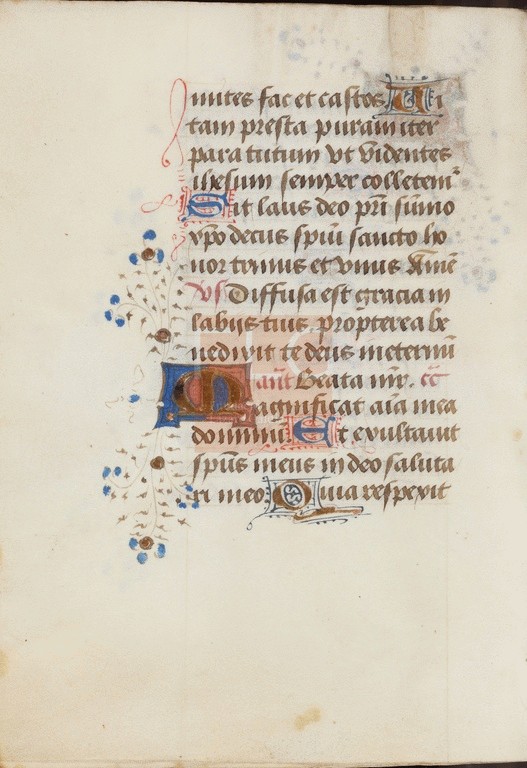 mites fac et castos Ui
tam presta puram iter
para tutum vt videntes
ihesum semper colletem᷑
Sit laus deo pr̄i sūmo
xp̄o decus sp̄iui sancto ho
nor trinus et vnus Amē
Vs Diffusa est gracia in
labijs tuis propterea be
nedixit te deus in eternū
ant̄ Beata mr̄. cc̄
Magnificat aīa mea
dominū Et exultauit
sp̄us meus in deo saluta
ri meo Quia respexit